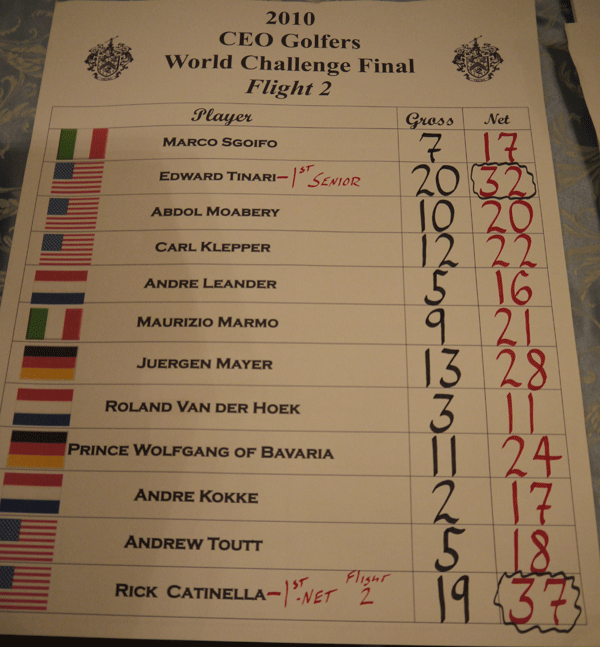 2010
CEO Golfers
World Challenge Final
Flight 2
Player Gross Net
MARCO SGOIFO 7 17
EDWARD TINARI - 1ST SENIOR 20 32
ABDOL MOABERY 10 20
CARL KLEPPER 12 22
ANDRE LEANDER 5 16
MAURIZIO MARMO 9 21
JUERGEN MAYER 13 28
ROLAND VAN DER HOEK 3 11
PRINCE WOLFGANG OF BAVARIA 11 24
ANDRE KOKKE 2 17
ANDREW TOUTT 5 18
RICK CATINELLA - 1ST -NET Flight 2 19 37